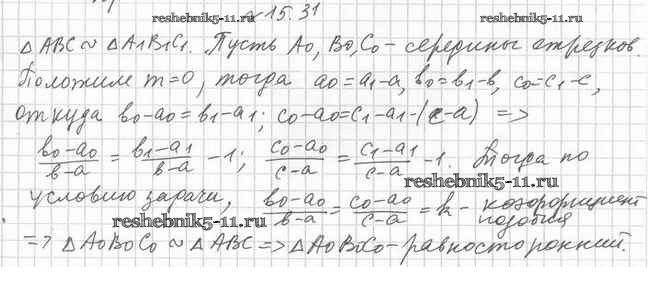 reshebnik5-11.ru
№ 15.31
reshebnik5-11.ru
△ABC ~ △A1B1C1. Пусть A0, B0, C0 - середины отрезков.
Положим m=0, тогда a0=a1-a, b0=b1-b, c0=c1-c,
откуда b0-a0=b1-a1; c0-a0=c1-a1-(c-a) =>
(b0-a0)/(b-a) = (b1-a1)/(b-a) - 1; (c0-a0)/(c-a) = (c1-a1)/(c-a) - 1. Тогда по
reshebnik5-11.ru
условию задачи, (b0-a0)/(b-a) = (c0-a0)/(c-a) = k - коэффициент
подобия
reshebnik5-11.ru
=> △A0B0C0 ~ △ABC => △A0B0C0 - равносторонний.